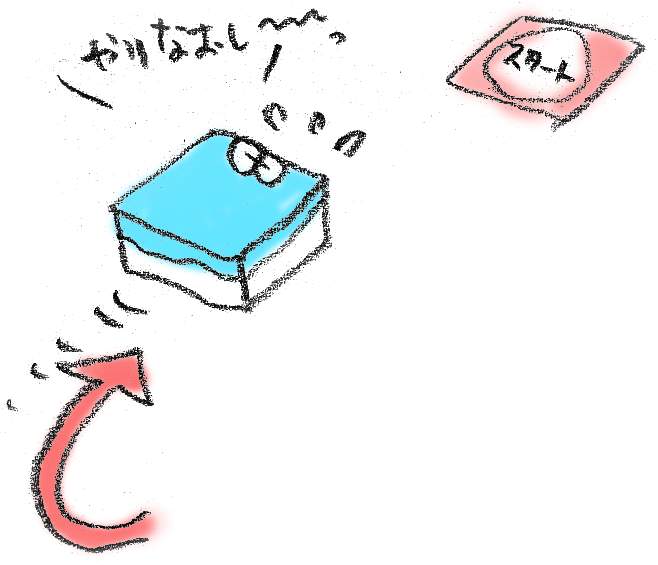 やりなおし〜〜っ
スタート